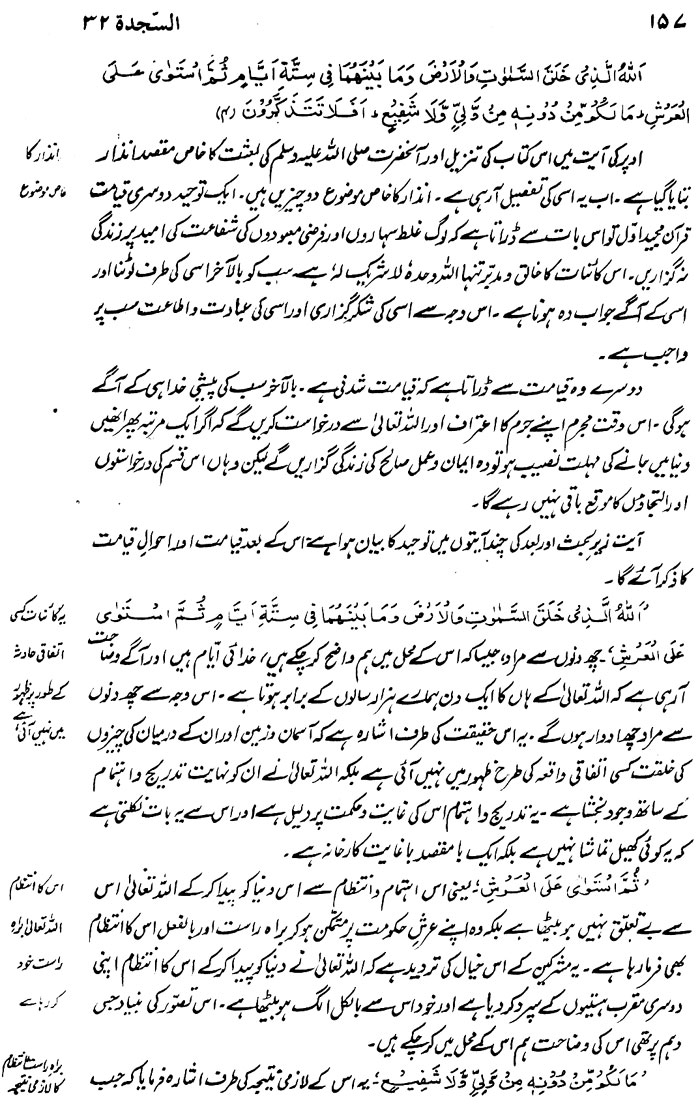 ۱۵۷ السّجدة ۳۲
اَللّٰهُ الَّذِیْ خَلَقَ السَّمٰوٰتِ وَالْاَرْضَ وَمَا بَیْنَهُمَا فِیْ سِتَّةِ اَیَّامٍ ثُمَّ اسْتَوٰی عَلَی
الْعَرْشِ ؕ مَا لَکُمْ مِّنْ دُوْنِهٖ مِنْ وَّلِیٍّ وَّلَا شَفِیْعٍ ؕ اَفَلَا تَتَذَکَّرُوْنَ (۴)
اوپر کی آیت میں اس کتاب کی تنزیل اور آنحضرت صلی اللہ علیہ وسلم کی بعثت کا خاص مقصد انذار
انذار کا
بتایا گیا ہے۔ اب یہ اسی کی تفصیل آرہی ہے۔ انذار کا خاص موضوع دو چیزیں ہیں۔ ایک توحید دوسری قیامت
خاص موضوع
قرآن مجید اوّل تو اس بات سے ڈراتا ہے کہ لوگ غلط سہاروں اور فرضی معبودوں کی شفاعت کی امید پر زندگی
نہ گزاریں۔ اس کائنات کا خالق و مدبّر تنہا اللہ وحدہٗ لا شریک لہٗ ہے سب کو بالآخر اسی کی طرف لوٹنا اور
اسی کے آگے جواب دہ ہونا ہے۔ اس وجہ سے اسی کی شکرگزاری اور اسی کی عبادت و اطاعت سب پر
واجب ہے۔
دوسرے وہ قیامت سے ڈراتا ہے کہ قیامت شدنی ہے۔ بالآخر سب کی پیشی خدا ہی کے آگے
ہوگی۔ اس وقت مجرم اپنے جرم کا اعتراف اور اللہ تعالیٰ سے درخواست کریں گے کہ اگر ایک مرتبہ پھر انھیں
دنیا میں جانے کی مہلت نصیب ہو تو وہ ایمان و عمل صالح کی زندگی گزاریں گے لیکن وہاں اس قسم کی درخواستوں
اور التجاؤں کا موقع باقی نہیں رہے گا۔
آیت زیر بحث اور بعد کی چند آیتوں میں توحید کا بیان ہوا ہے اس کے بعد قیامت اور احوالِ قیامت
کا ذکر آئے گا۔
’اَللّٰهُ الَّذِیْ خَلَقَ السَّمٰوٰتِ وَالْاَرْضَ وَمَا بَیْنَهُمَا فِیْ سِتَّةِ اَیَّامٍ ثُمَّ اسْتَوٰی
یہ کائنات کسی
عَلَی الْعَرْشِ‘، چھ دنوں سے مراد، جیسا کہ اس کے محل میں ہم واضح کر چکے ہیں، خدائی ایّام ہیں اور آگے وضاحت
اتفاقی حادثہ
آرہی ہے کہ اللہ تعالیٰ کے ہاں کا ایک دن ہمارے ہزار سالوں کے برابر ہوتا ہے۔ اس وجہ سے چھ دنوں
کے طور پر ظہور
سے مراد چھ ادوار ہوں گے۔ یہ اس حقیقت کی طرف اشارہ ہے کہ آسمان و زمین اور ان کے درمیان کی چیزوں
میں نہیں آئی ہے
کی خلقت کسی اتفاقی واقعہ کی طرح ظہور میں نہیں آئی ہے بلکہ اللہ تعالیٰ نے ان کو نہایت تدریج و اہتمام
کے ساتھ وجود بخشا ہے۔ یہ تدریج و اہتمام اس کی غایت و حکمت پر دلیل ہے اور اس سے یہ بات نکلتی ہے
کہ یہ کوئی کھیل تماشا نہیں ہے بلکہ ایک بامقصد باغایت کارخانہ ہے۔
’ثُمَّ اسْتَوٰی عَلَی الْعَرْشِ‘، یعنی اس اہتمام و انتظام سے اس دنیا کو پیدا کر کے اللہ تعالیٰ اس
اس کا انتظام
سے بے تعلق نہیں ہو بیٹھا ہے بلکہ وہ اپنے عرشِ حکومت پر متمکن ہو کر براہ راست اور بالفعل اس کا انتظام
اللہ تعالیٰ براہ
بھی فرما رہا ہے۔ یہ مشرکین کے اس خیال کی تردید ہے کہ اللہ تعالیٰ نے دنیا کو پیدا کر کے اس کا انتظام اپنی
راست خود
دوسری مقرب ہستیوں کے سپرد کر دیا ہے اور خود اس سے بالکل الگ ہو بیٹھا ہے۔ اس تصوّر کی بنیاد جس
کر رہا ہے
وہم پر تھی اس کی وضاحت ہم اس کے محل میں کر چکے ہیں۔
’مَا لَکُمْ مِّنْ دُوْنِهٖ مِنْ وَّلِیٍّ وَّلَا شَفِیْعٍ‘، یہ اس کے لازمی نتیجہ کی طرف اشارہ فرمایا کہ جب
براہ راست انتظام
کا لازمی نتیجہ